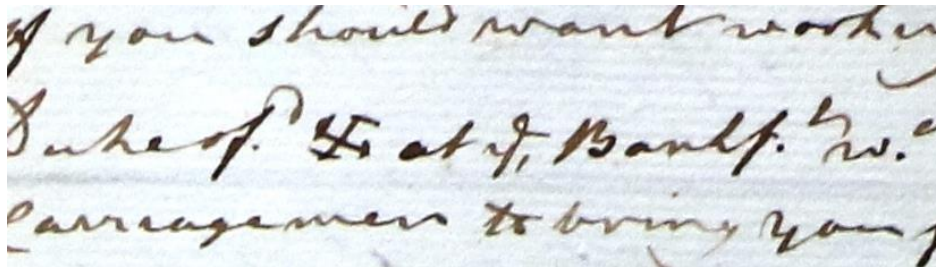 if you should want workin
Duke of. & at ye, Bankf.t w.d
Carriagemen to bring you